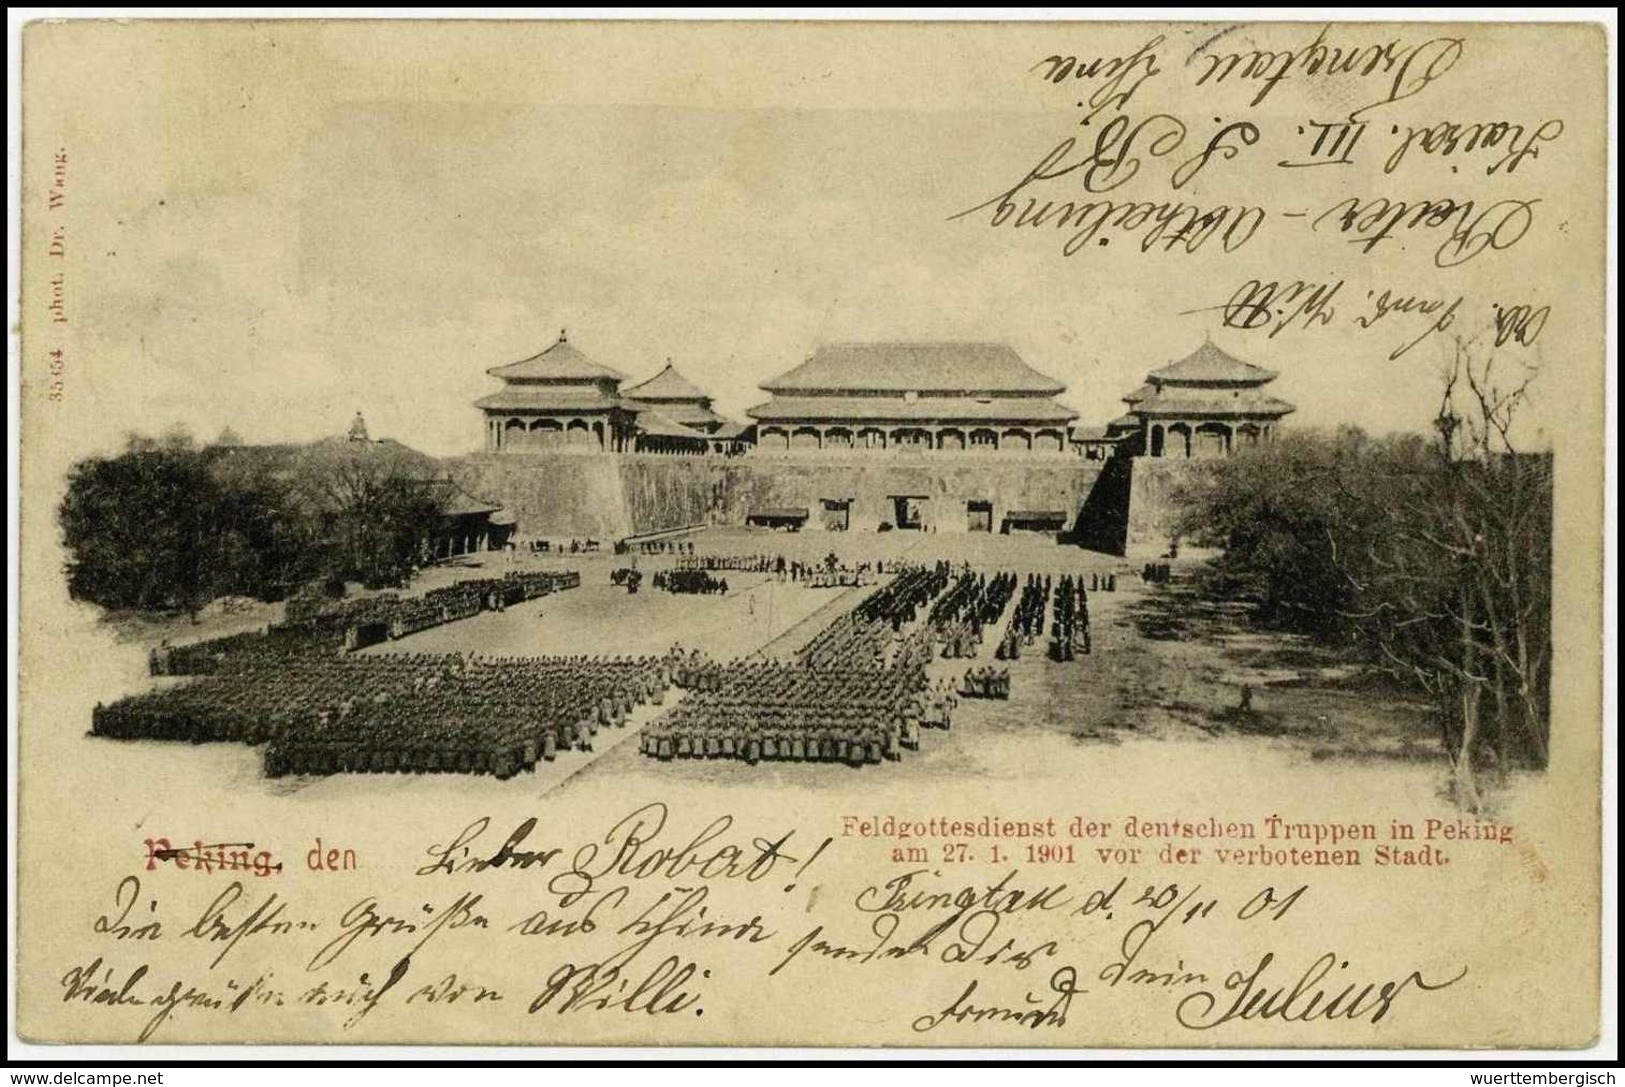 35354 phot. Dr. Wang.
Tsingtau China
Kaiserl. III. S. B.
Reiter-Abtheilung
Witt
Feldgottesdienst der deutschen Truppen in Peking
am 27. 1. 1901 vor der verbotenen Stadt.
Peking, den
Lieber Robert!
Tsingtau d. 20/11 01
Die besten Grüße aus China sendet Dir Dein
Viele Grüße auch von Willi. Freund Julius
wuerttembergisch